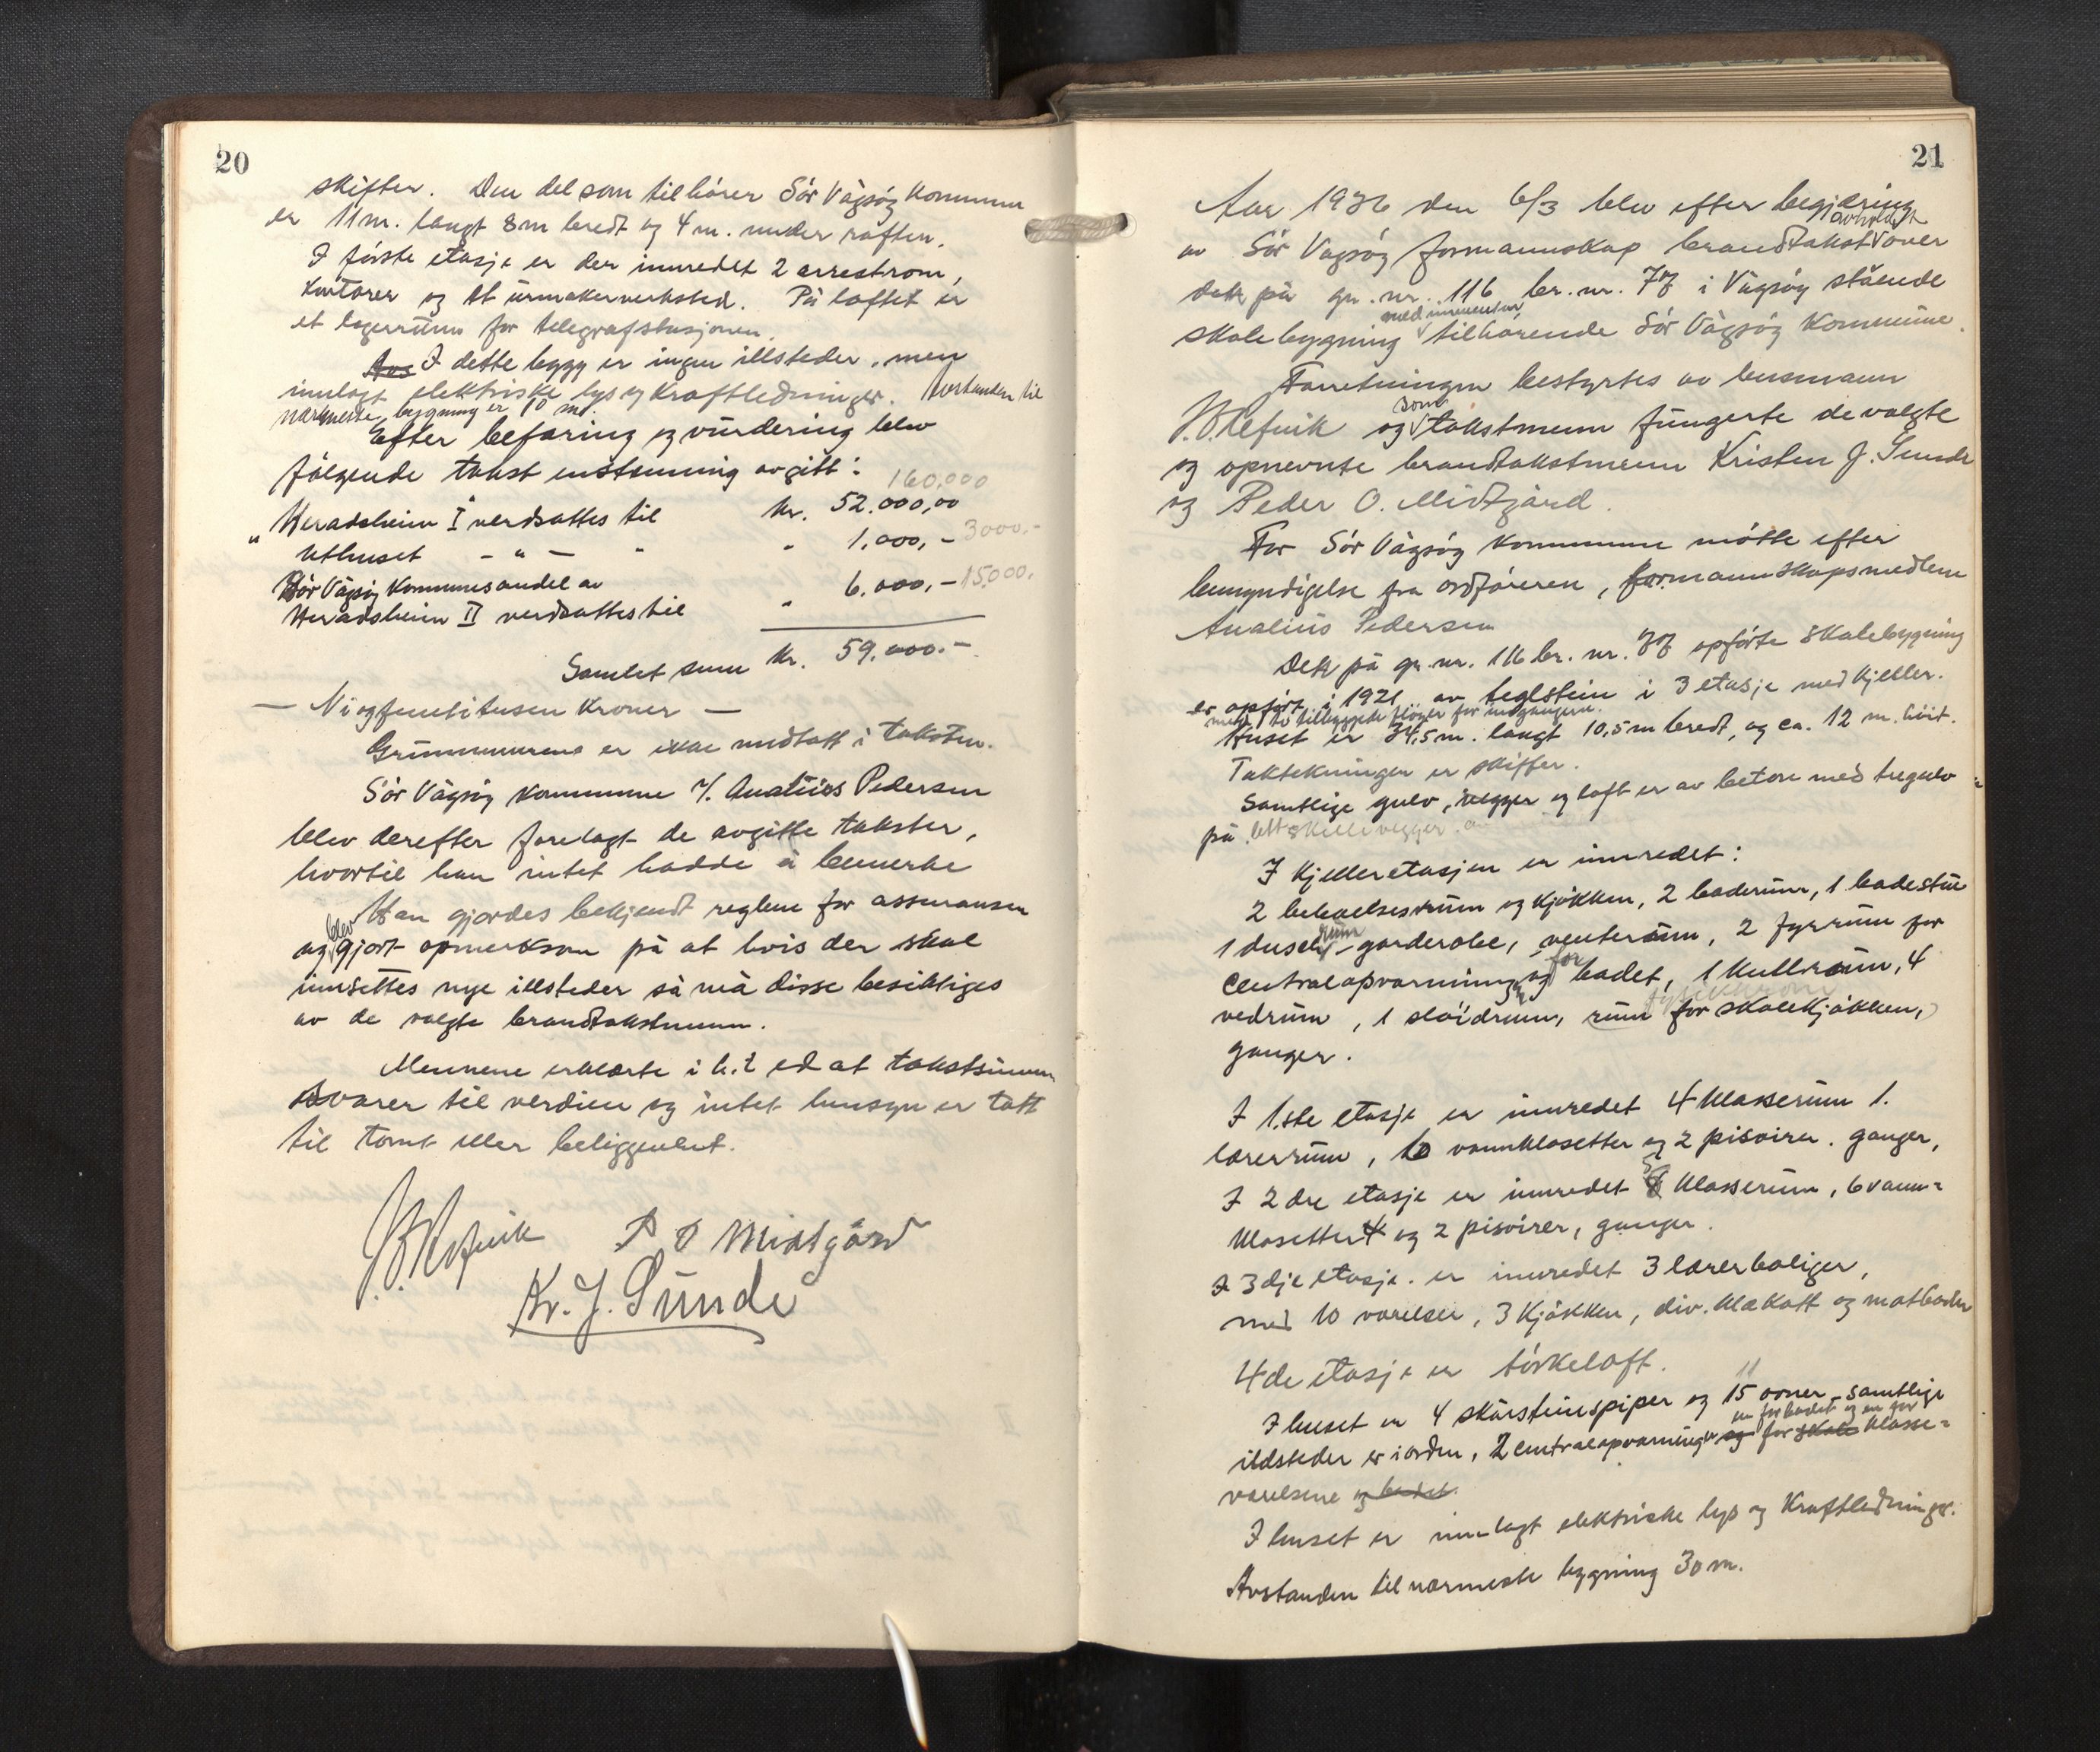 20
skifter. Den del som tilhörer Sör Vågsöy Kommune
er 11 m. langt 8 m bredt og 4 m. under raften.
I förste etasje er der innredet 2 arrestrom,
kontorer og et urmakerverksted. På loftet er
et lagerrum for telegrafstasjonen.
I dette bygg er ingen illsteder, men
innlagt elektriske lys og Kraftledninger. Avstanden til
nærmeste bygning er 10 m.
Efter befaring og vurdering blev
fölgende takst enstemmig avgitt:
160,000
"Heradsheim I verdsattes til kr. 52.000,00
Uthuset - " - " " 1.000,- 3000.-
Sör Vågsöy Kommunes andel av
Heradsheim II verdsattes til " 6.000,- 15.000.
Samlet sum kr. 59.000.-
— Niogfemtitusen Kroner —
Grunnmurene er ikke medtatt i taksten.
Sör Vågsöy Kommune v/. Analius Pedersen
blev derefter forelagt de avgitte takster,
hvortil han intet hadde å bemerke
Han gjordes bekjendt reglene for assuransen
og blev gjort opmerksom på at hvis der skal
innsettes nye illsteder så må disse besiktiges
av de valgte brandtakstmenn.
Mennene erklærte i h.t ed at takstsummen
svarer til verdien og intet hensyn er tatt
til tomt eller beliggenhet.
J.B. Refvik P O Midtgård
Kr. J. Sunde
21
Aar 1936 den 6/3 blev efter begjæring
av Sör Vågsöy formannskap brandtakst avholdt over
den på gr. nr. 116 br. nr. 78 i Vågsöy stående
skolebygning med inventar tilhörende Sör Vågsöy Kommune.
Forretningen bestyrtes av lensmann
J.B. Refvik og som takstmenn fungerte de valgte
og opnevnte brandtakstmenn Kristen J. Sunde
og Peder O. Midtgård.
For Sör Vågsöy Kommune mötte efter
bemyndigelse fra ordföreren, formannskapsmedlem
Analius Pedersen
Den på gr. nr. 116 br. nr. 78 opförte skolebygning
er opfört i 1921 av teglstein i 3 etasje med kjeller.
med to tilbyggede flöyer for inngangene.
Huset er 34,5 m. langt 10,5 m bredt, og ca. 12 m. höit.
Taktekningen er skiffer.
Samtlige gulv, vegger og loft er av beton med tregulv
på. lett skillevegger.
I kjelleretasjen er innredet:
2 beboelsesrum og kjökken, 2 baderum, 1 badestue
1 duschrum - garderobe, venterum, 2 fyrrum for
centralopvarmning og for badet, 1 kullrum, 4
vedrum, 1 slöidrum, rum for skolekjökken,
ganger.
I 1.ste etasje er innredet 4 klasserum 1.
lærerrum, 10 vannklosetter og 2 pisoirer. ganger,
I 2 dre etasje er innredet 5 klasserum, 6 vann=
klosetter og 2 pisoirer, ganger.
I 3 dje etasje. er innredet 3 lærerboliger,
med 10 værelser, 3 kjökken, div. klækott og matboder
4 de etasje er törkeloft.
11
I huset er 4 skorsteinspiper og 15 ovner - samtlige
en for badet og en for
ildsteder er i orden, 2 centralopvarminger og for skole klasse=
værelsene og badet.
I huset er innlagt elektriske lys og Kraftledninger.
Avstanden til nærmeste bygning 30 m.